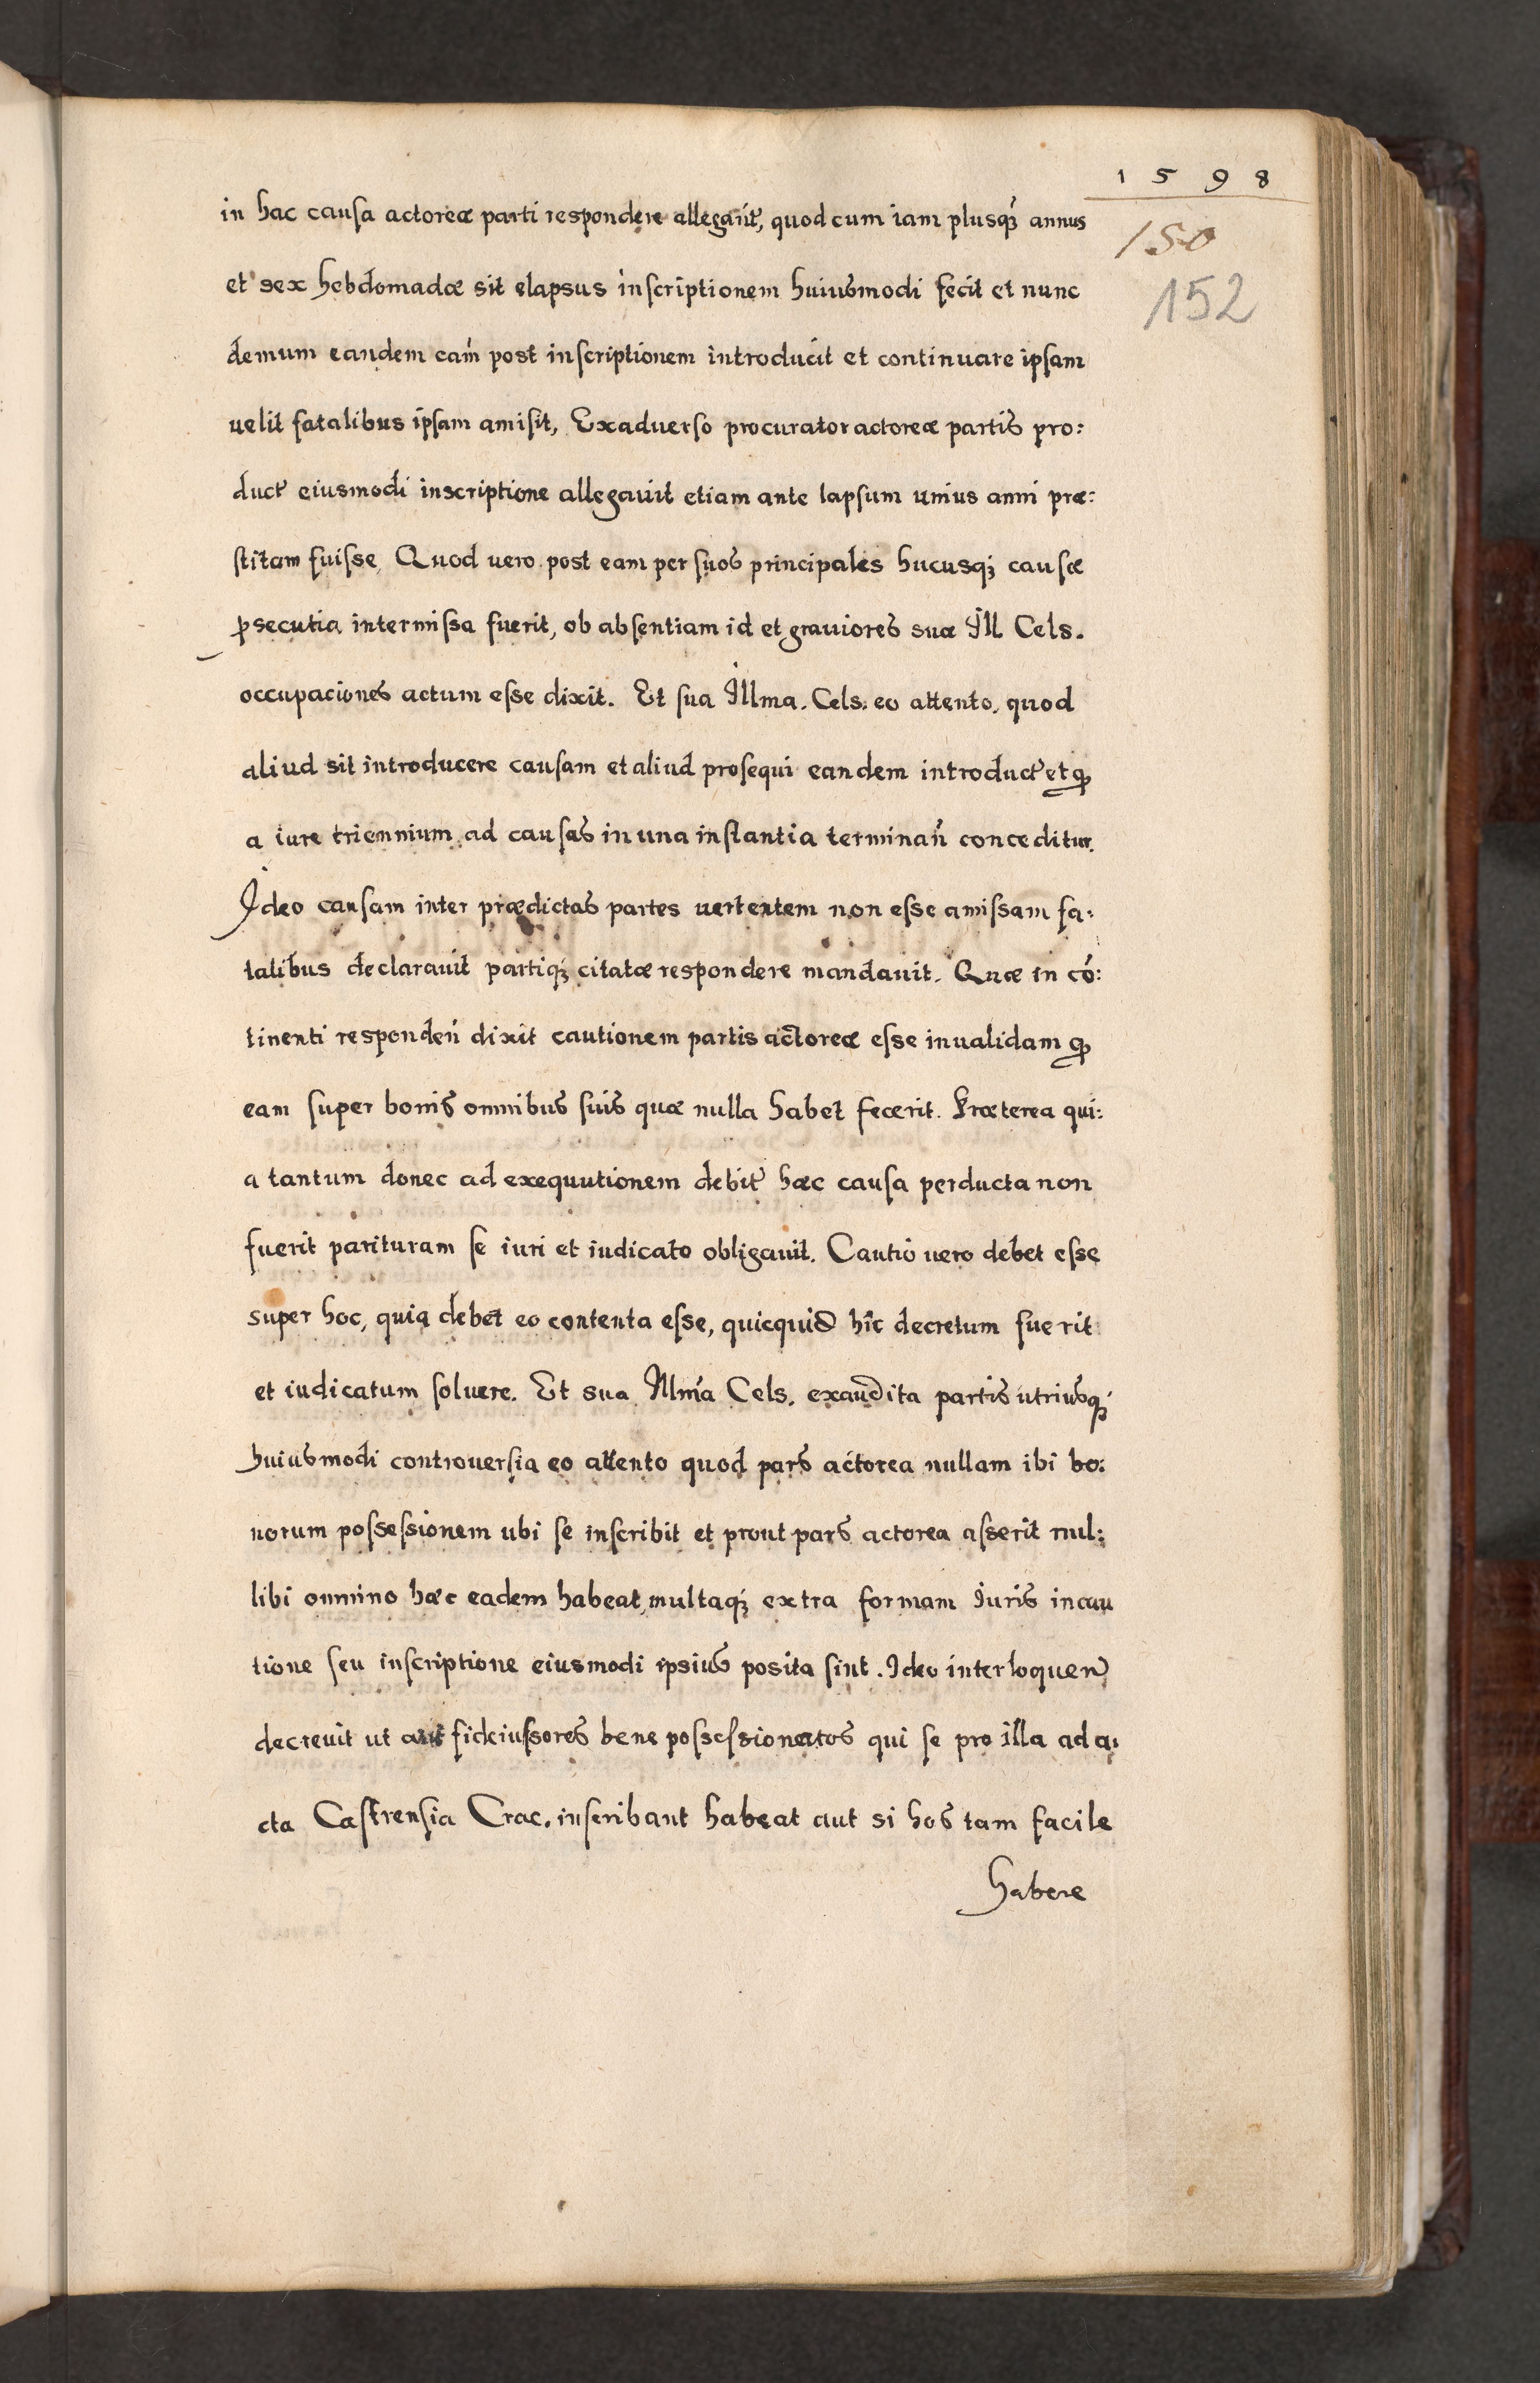 1598
150
152
in hac causa actoreæ parti respondere allegarũt, quod cum iam plusq̃ annus
et sex hebdomadæ sit elapsus inscriptionem huiusmodi fecit et nunc
demum eandem cam̃ post inscriptionem introducit et continuare ipsam
uelit fatalibus ipsam amisit, Ex aduerso procurator actoreæ partis pro:
duct̃ eiusmodi inscriptione allegauit etiam ante lapsum unius anni præ:
stitam fuisse, Quod uero post eam per suos principales hucusq̃ causæ
ꝓsecutia intermissa fuerit, ob absentiam id et grauiores suæ Ill Cels.
occupaciones actum esse dixit. Et sua Illma. Cels. eo attento, quod
aliud sit introducere causam et aliud prosequi eandem introduct̃ et qɔ
a iure triennium ad causas in una instantia terminan̄ conceditur.
Ideo causam inter prædictas partes uertentem non esse amissam fa:
talibus declarauit partiq̃ citatæ respondere mandauit. Quæ in cõ:
tinenti responden̄ dixit cautionem partis actoreæ esse inualidam qɔ
eam super bonis omnibus suis quæ nulla habet fecerit. Præterea qui:
a tantum donec ad exequutionem debit̃ hæc causa perducta non
fuerit parituram se iuri et iudicato obligauit. Cautio uero debet esse
super hoc, quia debet eo contenta esse, quicquid hîc decretum fuerit
et iudicatum soluere. Et sua Illmã Cels. exaudita partis utriusq̃
huiusmodi controuersia eo attento quod pars actorea nullam ibi bo:
norum possessionem ubi se inscribit et prout pars actorea asserit nul:
libi omnino hæc eadem habeat, multaq̃ extra formam Iuris in cau
tione seu inscriptione eiusmodi ipsius posita sint. Ideo interloquen̄
decreuit ut aut fideiussores bene possessionatos qui se pro illa ad a:
cta Castrensia Crac. inscribant habeat aut si hos tam facile
habere